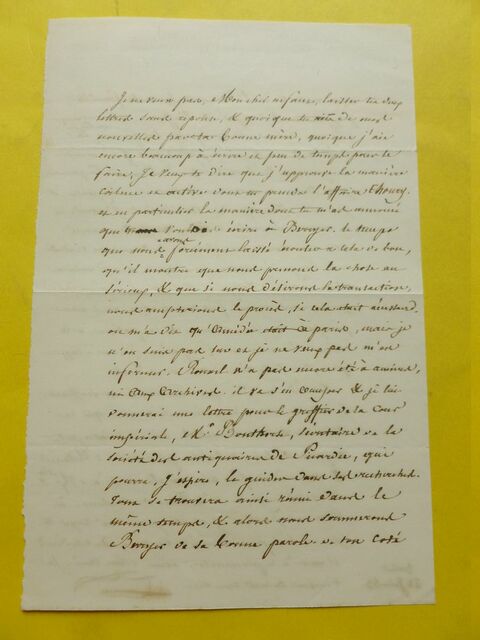 Je ne veux pas, Mon cher enfant, laisser tes deux
lettres sans réponse, & quoique tu aies de mes
nouvelles par ta bonne mère, quoique j'aie
encore beaucoup à écrire et peu de temps pour le
faire, je veux te dire que j'approuve la manière
et active dont tu prends l'affaire Choucy
et en particulier la manière dont tu m'as annoncé
qu' écrire à Berryer. le temps
que nous avons forcément laissé écouler a cela de bon,
qu'il montre que nous prenons la chose au
sérieux, & que si nous désirons la transaction,
nous accepterions le procès, si cela était nécessaire.
on m'a dit qu'Amédée était à Paris, mais je
n'en suis pas sur et je ne veux pas m'en
informer. n'a pas encore été à amiens,
ni aux archives. il va s'en occuper & je lui
donnerai une lettre pour le greffier de la Cour
impériale, & Mr. Bouthors, secrétaire de la
société des antiquaires de Picardie, qui
pourra, j'espère, le guider dans ses recherches.
Tout se trouvera ainsi réuni dans le
même temps, & alors nous sommerons
Berryer de sa bonne parole. de ton coté